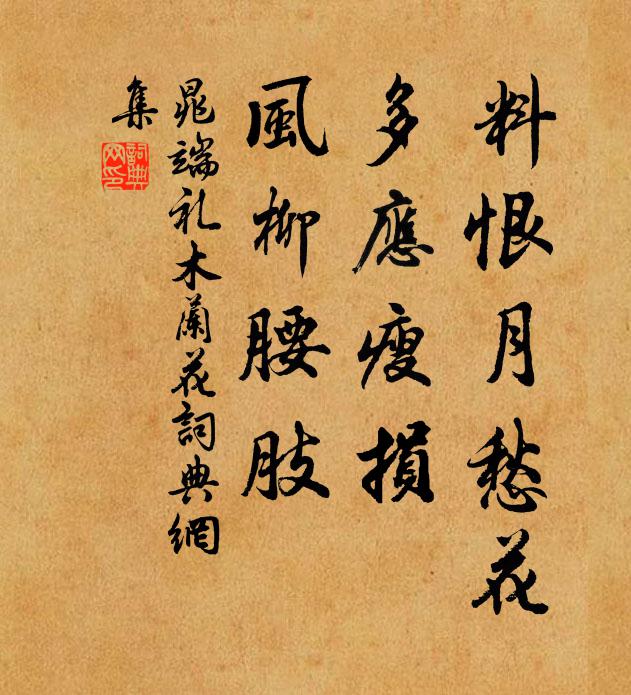 料恨月愁花
多應瘦損
風柳腰肢
晁端礼木蘭花詞典網
集
詞典
网印